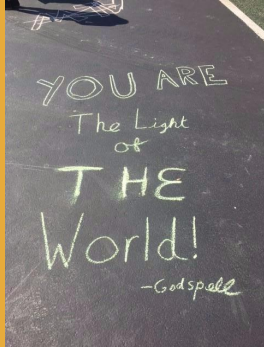 YOU ARE
The Light
of
THE
World!
-Godspell